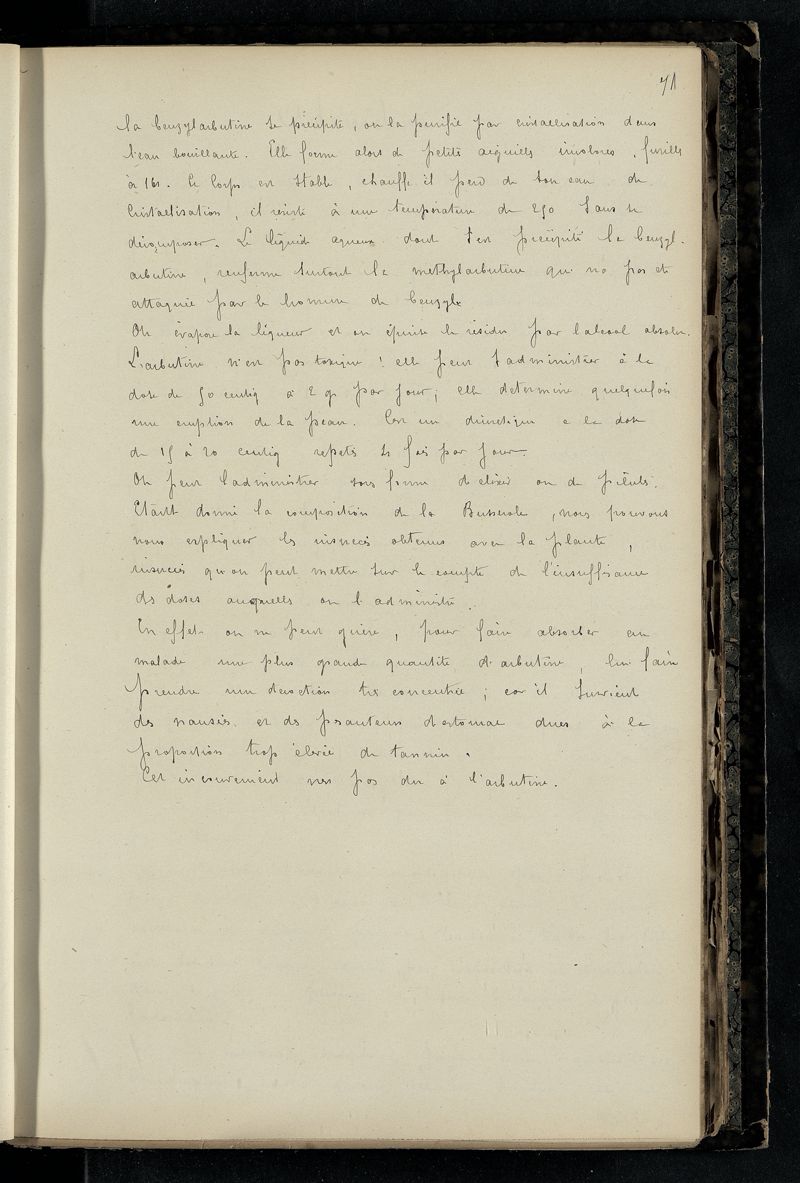 71
la benzylarbutine se précipite, on la purifie par cristallisation dans
l'eau bouillante. Elle forme alors de petits aiguilles incolores, fusilles
à 161. Ce corps est stable, chauffé il perd de son eau de
cristallisation, il resiste à une température de 250 sans se
décomposer. Le liquide aqueux dont s'est précipité la benzyl-
arbutine, renferme surtout la methylarbutine qui na pas été
attaquée par le bromure de benzyle
On évapore la liqueur et on épuise le résidu par l'alcool absolu.
L'arbutine n'est pas toxique! elle peut s'administrer à la
dose de 50 centig à 2 g par jour; elle determine quelquefois
une eruption de la peau. C'est un diuretique a la dose
de 15 à 20 centig repets fois par jour.
On peut l'administrer sous forme d'elixir ou de pilules.
Etant donné la composition de la Busserole, nous pouvons
nous expliquer les insuccés obtenus avec la plante,
insuccés qu'on peut mettre sur le compte de l'insuffisance
des doses auxquelles on l'administre.
En effet on ne peut guère, pour faire absorber au
malade une plus grande quantité d'arbutine, lui faire
prendre une decoction tres concentrée; car il survient
des nausées et des pesanteurs d'estomac dues à la
proportion trop élevée de tannin.
Cet inconvenient nest pas du à l'arbutine.